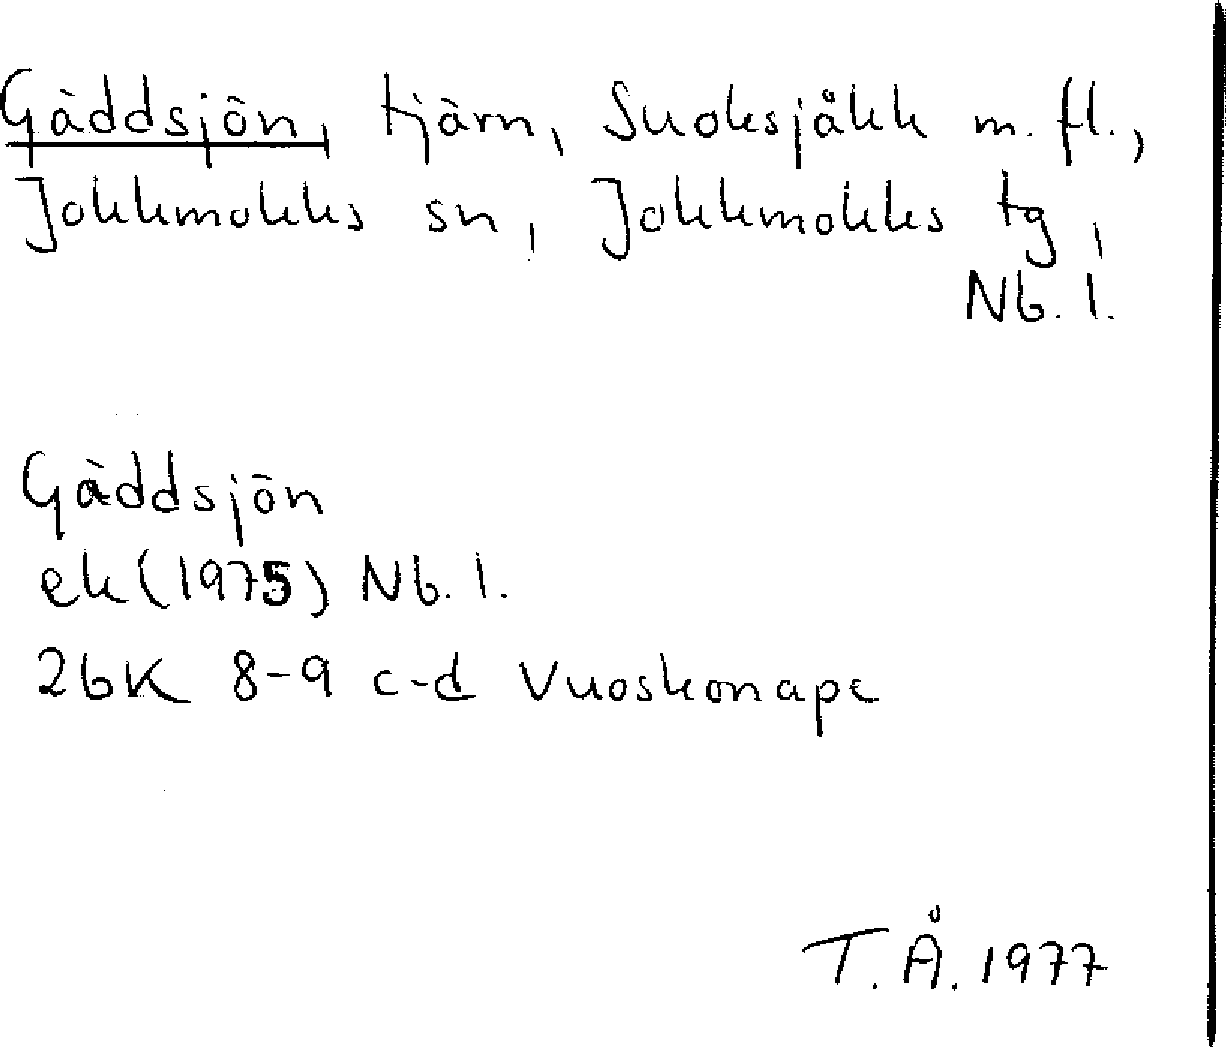 Gäddsjön, tjärn, Suoksjåkk m. fl.,
Jokkmokks sn, Jokkmokks tg,
Nb. l.
Gäddsjön
ek (1975) Nb. l.
26K 8-9 c-d Vuoskonape
T. Å. 1977